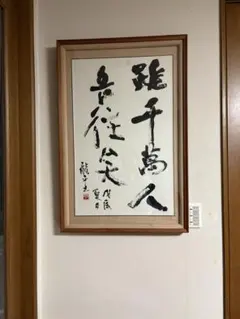 雖千萬人
吾往矣
戊辰
夏日